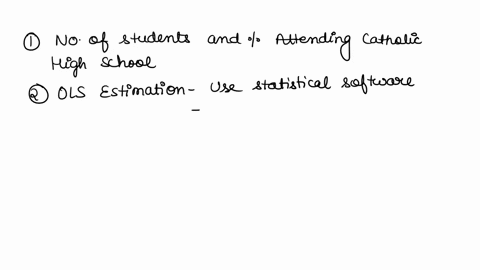 ① No. of students and % Attending Catholic
High School
② OLS Estimation - Use statistical software